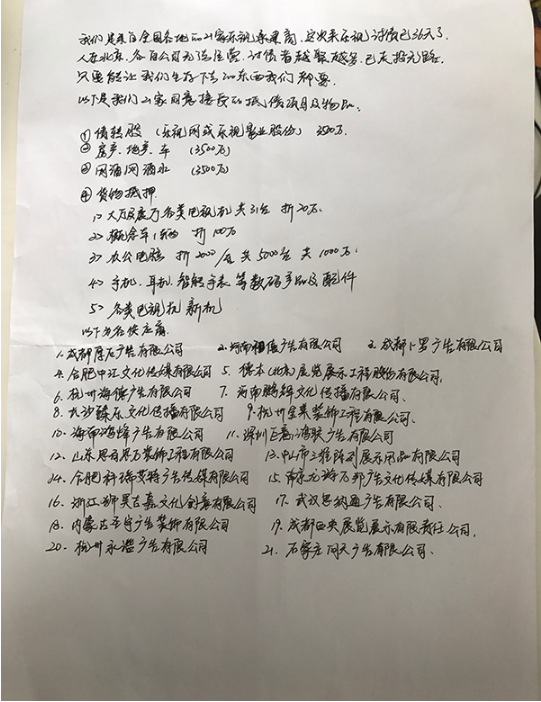 我们是来自全国各地的21家乐视承建商,这次来乐视讨债已36天了.
人在北京,各自公司无法经营,讨债者越聚越多,已走投无路.
只要能让我们生存下去的东西我们都要.
以下是我们21家同意接受的抵债项目及物品.
① 债转股 (乐视网或乐视影业股份) 3500万.
② 房产、地产、车 (3500万)
③ 网酒网酒水 (3500万)
④ 货物抵押.
1> 大厅展厅各类电视机共31台 折20万.
2> 概念车1辆 折100万
3> 办公电脑 折2000/台 共5000台 共1000万.
4> 手机、耳机、智能手表等数码产品及配件
5> 各类电视机新机
以下为各供应商.
1. 成都广告有限公司 2. 河南广告有限公司 3. 成都卜男广告有限公司
4. 合肥中江文化传媒有限公司 5. 德本(北京)展览展示工程股份有限公司.
6. 杭州海德广告有限公司 7. 河南鹏辉文化传播有限公司、
8. 长沙臻乐文化传播有限公司 9. 杭州金果装饰工程有限公司.
10. 海南鸿烽广告有限公司 11. 深圳巨意鸿联广告有限公司
12. 山东思启思万装饰工程有限公司 13. 中山市工程陈列展示用品有限公司
14. 合肥科瑞艾特广告传媒有限公司 15. 南京龙游万邦广告文化传媒有限公司
16. 浙江狮昊古嘉文化创意有限公司 17. 武汉思纳通广告有限公司.
18. 内蒙古广告装饰有限公司 19. 成都西央展览展示有限责任公司.
20. 杭州永潽广告有限公司 21. 石家庄问天广告有限公司.